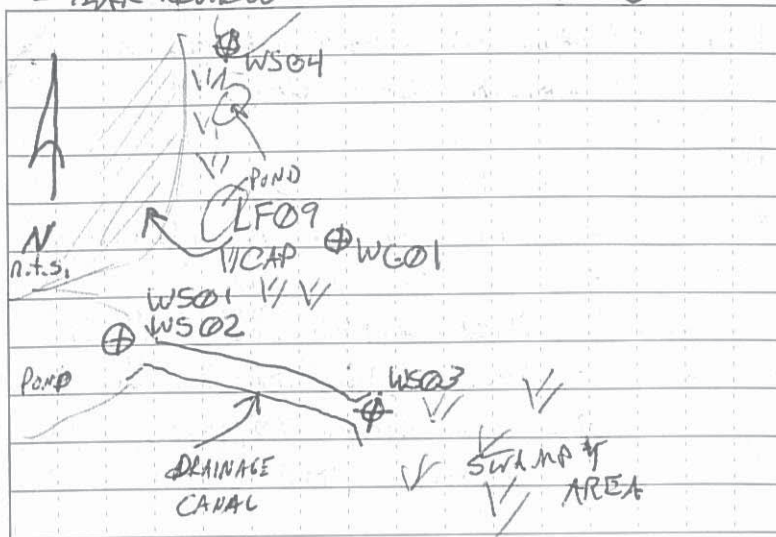 WSØ4
POND
LFØ9
CAP
WGØ1
N
n.t.s.
WSØ1
WSØ2
POND
WSØ3
DRAINAGE
CANAL
SWAMPY
AREA